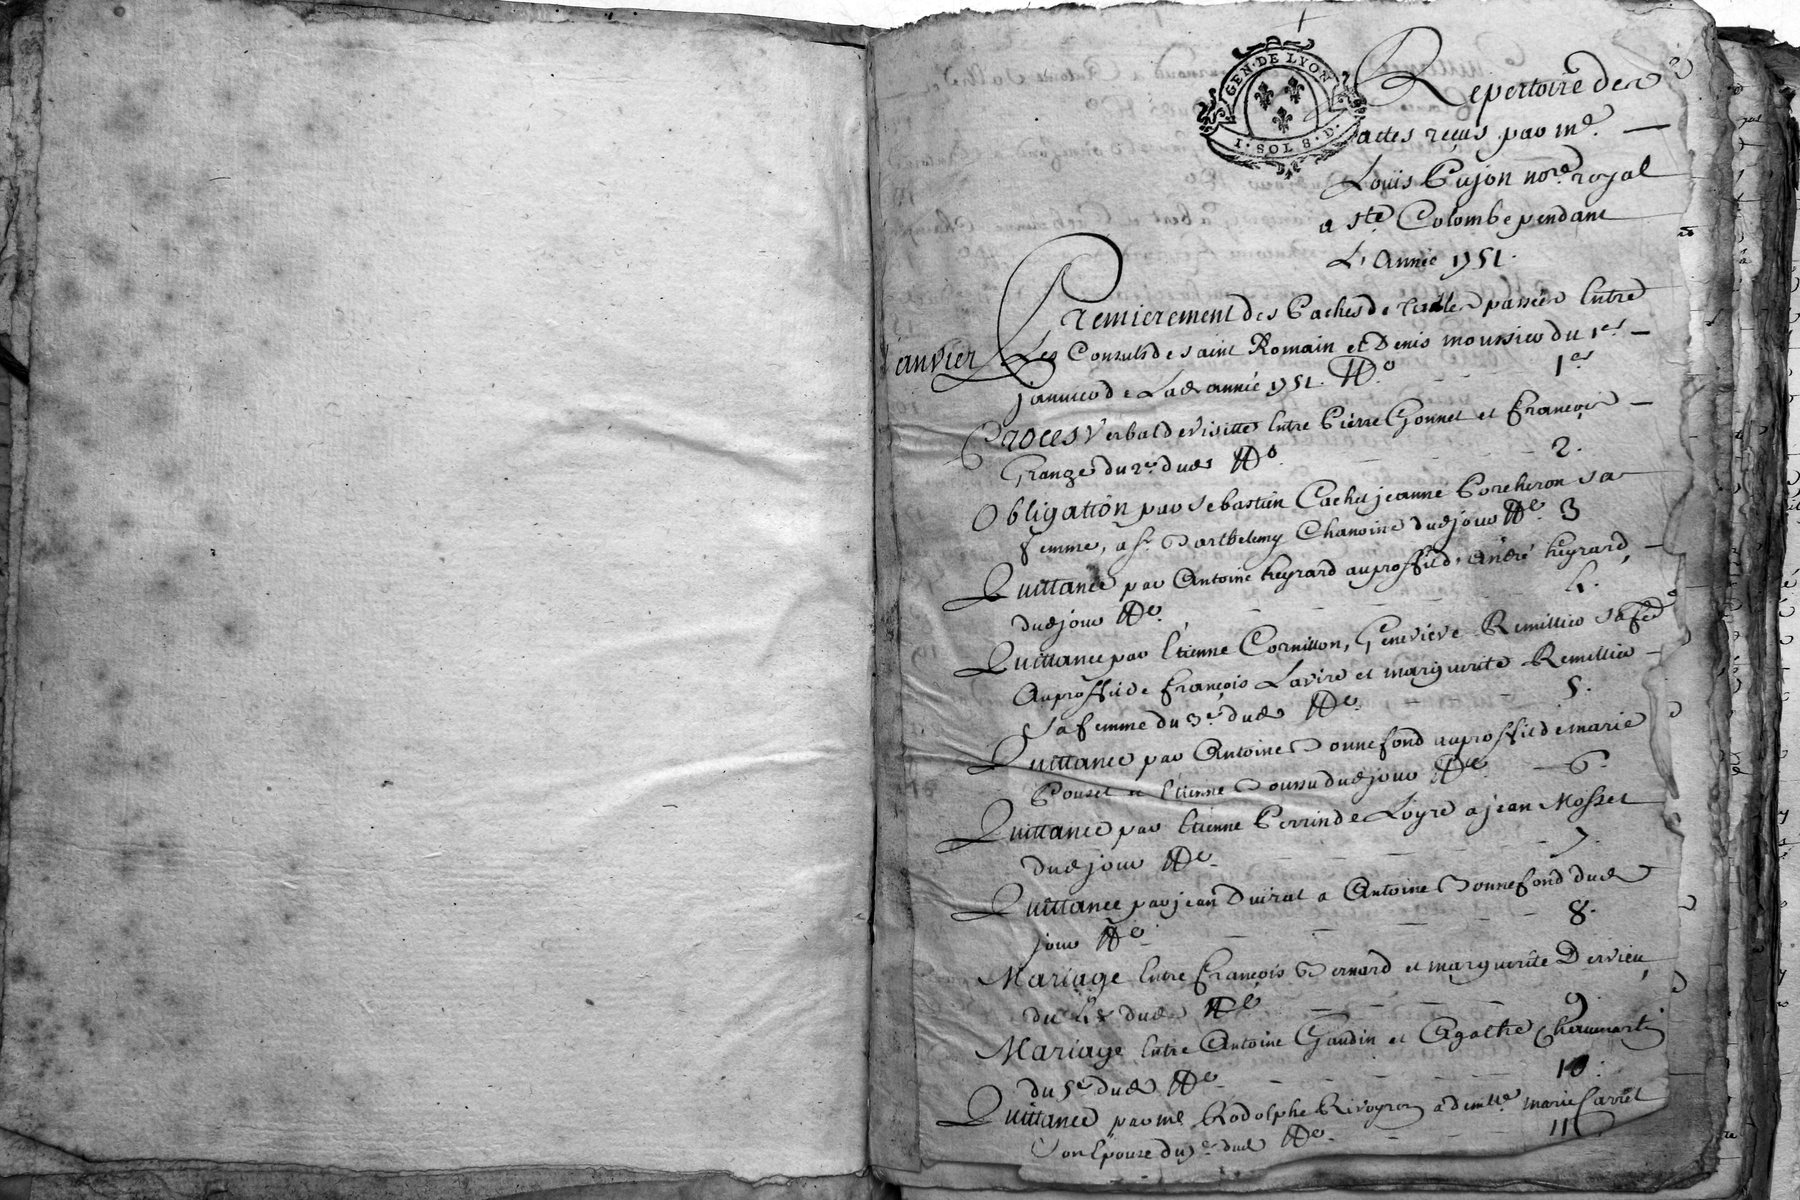 GEN·DE LYON
I·SOL 8·D·
Repertoire des
actes reçus par me.
Louis Pujon nore. royal
a Ste Colombe pendant
L'Année 1751.
Premierement des Paches de passées Entre
Janvier
Les Consuls de saint Romain et Denis moussier du 1er
janvier de Lade année 1751. 1er
Proces Verbal de visitte Entre Pierre Gonnet et François
Grange du 2e dud 2.
Obligation par Sebastien Pachet jeanne Porcheron sa
femme, a Sr Barthelemy Chanoine dud jour 3
Quittance par Antoine heyrard au proffit d'André heyrard
dud jour 4.
Quittance par Etienne Cornillon, Genevieve Remillier sa fe
Au proffit de François Lavire et marguerite Remillier
Sa femme du 3e dud 5.
Quittance par Antoine Bonnefond au proffit de marie
Pouzet et Etienne dud jour 6.
Quittance par Etienne Perrin de Loyre a jean Mosset
dud jour 7
Quittance par jean Duirat a Antoine Bonnefond dud
jour 8.
Mariage Entre François Bernard et marguerite Dervieu
du 4e dud 9
Mariage Entre Antoine Gaudin et Agathe
du 5e dud 10.
Quittance par me Rodolphe Rivoyron a demlle marie Carret
Son Epouse du 7e dud 11